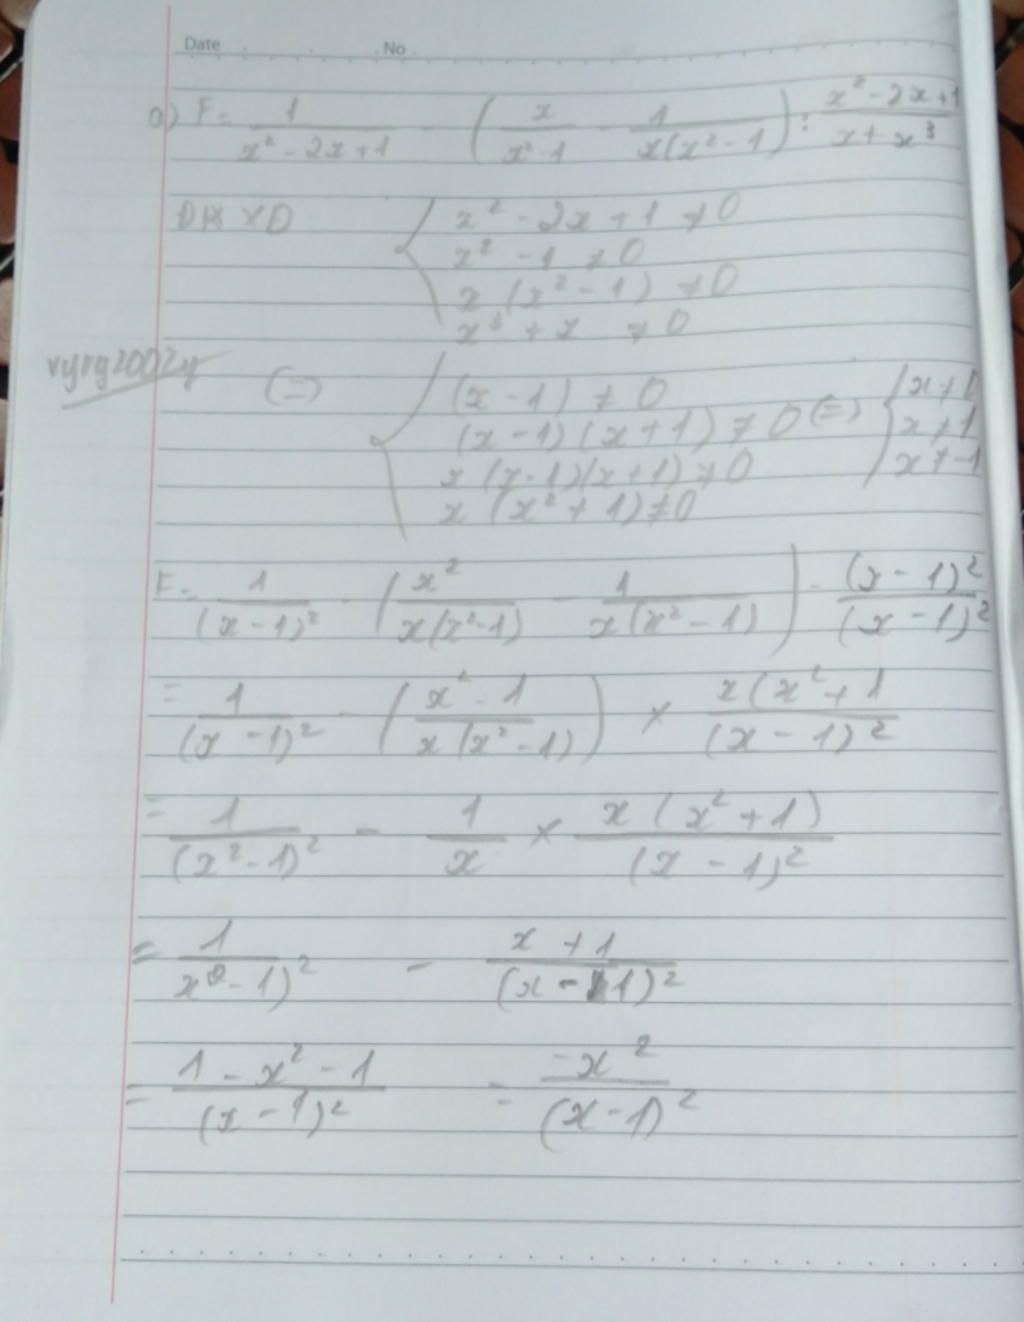 Date No.
a) F = 1/(x² - 2x + 1) - (x/(x² - 1) - 1/(x(x² - 1))) : (x² - 2x + 1)/(x + x³)
ĐKXĐ { x² - 2x + 1 ≠ 0
x² - 1 ≠ 0
x (x² - 1) ≠ 0
x³ + x ≠ 0
vyvy2002y
(=) { (x - 1) ≠ 0
(x - 1)(x + 1) ≠ 0 (=) { x ≠ 0
x (x - 1)(x + 1) ≠ 0 x ≠ 1
x (x² + 1) ≠ 0 x ≠ -1
F = 1/(x - 1)² - (x²/(x(x² - 1)) - 1/(x(x² - 1))) - (x - 1)²/(x - 1)²
= 1/(x - 1)² - ((x² - 1)/(x(x² - 1))) × x(x² + 1/(x - 1)²
= 1/(x² - 1)² - 1/x × x(x² + 1)/(x - 1)²
= 1/x² - 1)² - (x + 1)/(x - 1)²
= (1 - x² - 1)/(x - 1)² = -x²/(x - 1)²